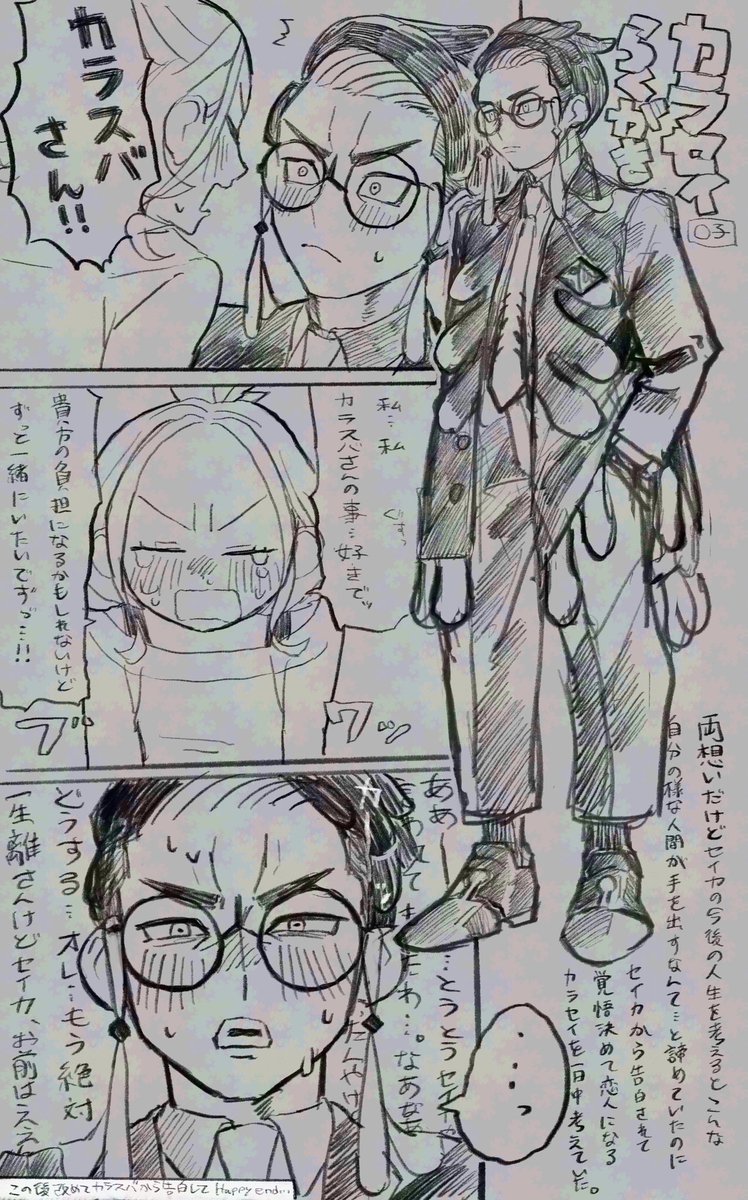 カラセイ
らくがき
○子
カラスバ
さん!!
私…私
カラスバさんの事…好きでッ
ぐすっ
貴方の負担になるかもしれないけど
ずっと一緒にいたいでずっ…!!
ブワッ
ああ
…とうとうセイカ
たわ…。なあなあ
たんやけ
どうする…オレ…もう絶対
一生離さんけどセイカ、お前はええ
…っ
両想いだけどセイカの今後の人生を考えるとこんな
自分の様な人間が手を出すなんて…と諦めていたのに
セイカから告白されて
覚悟決めて恋人になる
カラセイを一日中考えていた。
この後改めてカラスバから告白してHappy end...